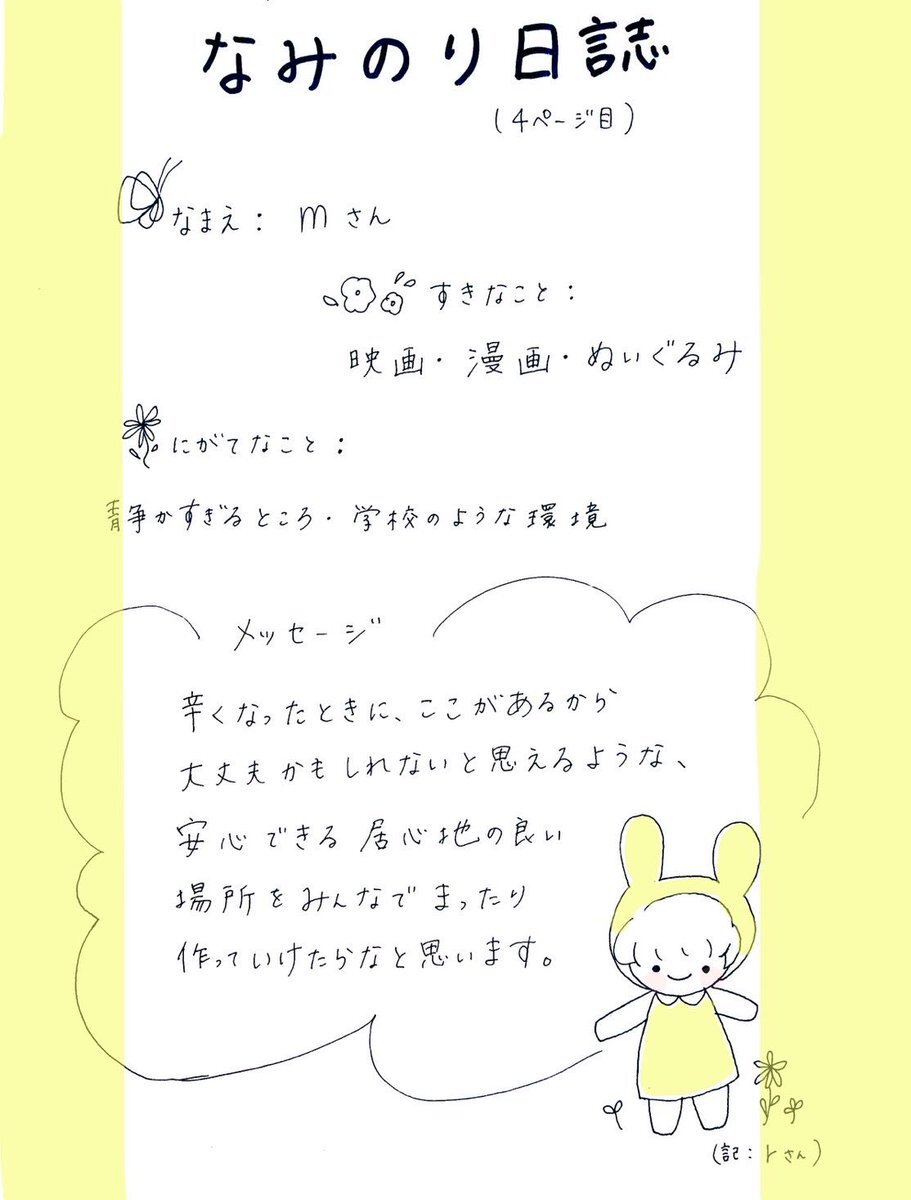 なみのり日誌
(4ページ目)
なまえ: mさん
すきなこと:
映画・漫画・ぬいぐるみ
にがてなこと:
静かすぎるところ・学校のような環境
メッセージ
辛くなったときに、ここがあるから
大丈夫かもしれないと思えるような、
安心できる居心地の良い
場所をみんなでまったり
作っていけたらなと思います。
(記:トさん)